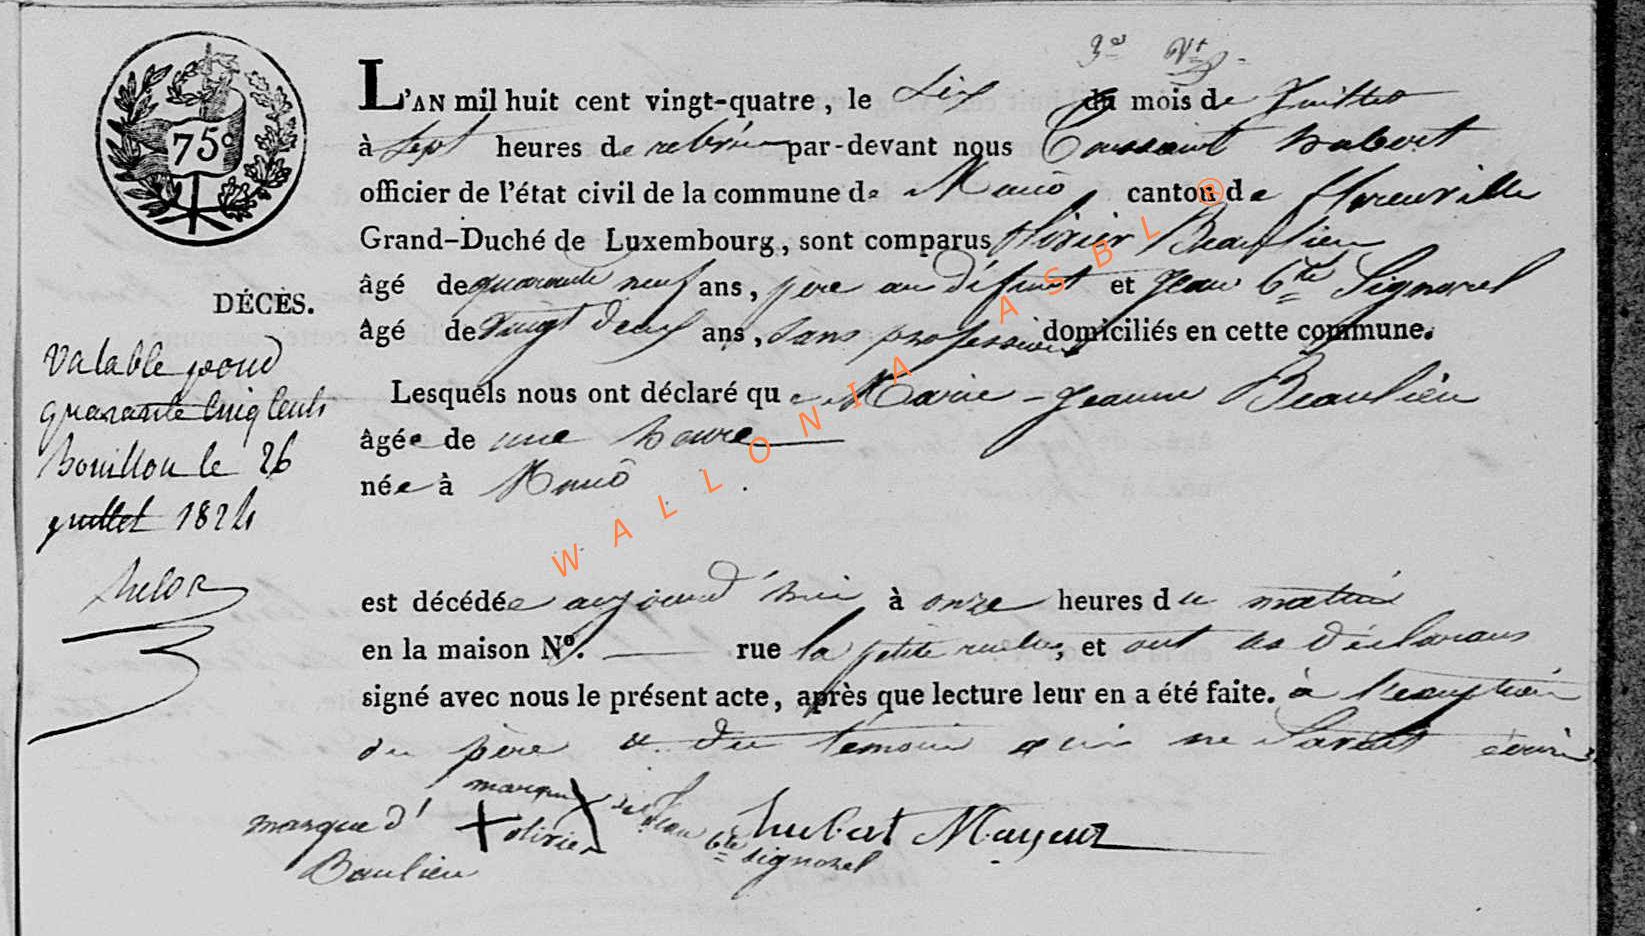 75c
3e Vt
L'AN mil huit cent vingt-quatre, le six du mois de Juillet
à sept heures de relevée par-devant nous Toussaint hubert
officier de l'état civil de la commune de Muno canton de florenville
Grand-Duché de Luxembourg, sont comparus olivier Beaulieu
âgé de quarante neuf ans, père au défunt et Jean Bte Signorel
âgé de vingt deux ans, sans profession domiciliés en cette commune.
DÉCÈS.
Valable pour
quarante cinq cents
Bouillon le 26
juillet 1824
Lesquels nous ont déclaré que Marie-Jeanne Beaulieu
âgée de une heure
née à Muno
est décédée aujourd'hui à onze heures du matin
en la maison No. rue la petite ruelle, et ont les déclarans
signé avec nous le présent acte, après que lecture leur en a été faite. à l'exception
du père et du temoin qui ne savent écrire
marque d' + olivier Baulieu
marque X de Jean Bte Signorel
hubert Mayeur
WALLONIA ASBL ®